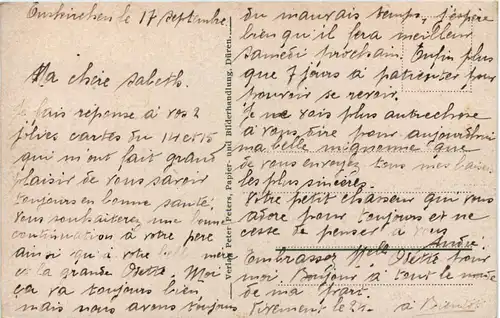 le 17 septembre
Ma chère Isabeth.
Je fais réponse à vos 2
jolies cartes du 14 et 15
qui m'ont fait grand
plaisir de vous savoir
toujours en bonne santé.
vous souhaiterez une bonne
continuation à votre père
ainsi qu'à votre belle mère
et la grande Odette. Moi
ça va toujours bien
mais nous avons toujours
Verlag Peter Peters, Papier- und Bilderhandlung, Düren.
du mauvais temps, j'espère
bien qu'il fera meilleur
samedi prochain. Enfin plus
que 7 jours à patienter pour
pouvoir se revoir.
Je ne vais plus autre chose
à vous dire pour aujourd'hui
ma belle mignonne que
de vous envoyer tous mes baisers
les plus sincères.
Votre petit chasseur qui vous
adore pour toujours et ne
cesse de penser à vous
André
Embrassez Melle Odette pour
moi. Bonjour à tout le monde
de ma part.
Vivement le 24. à